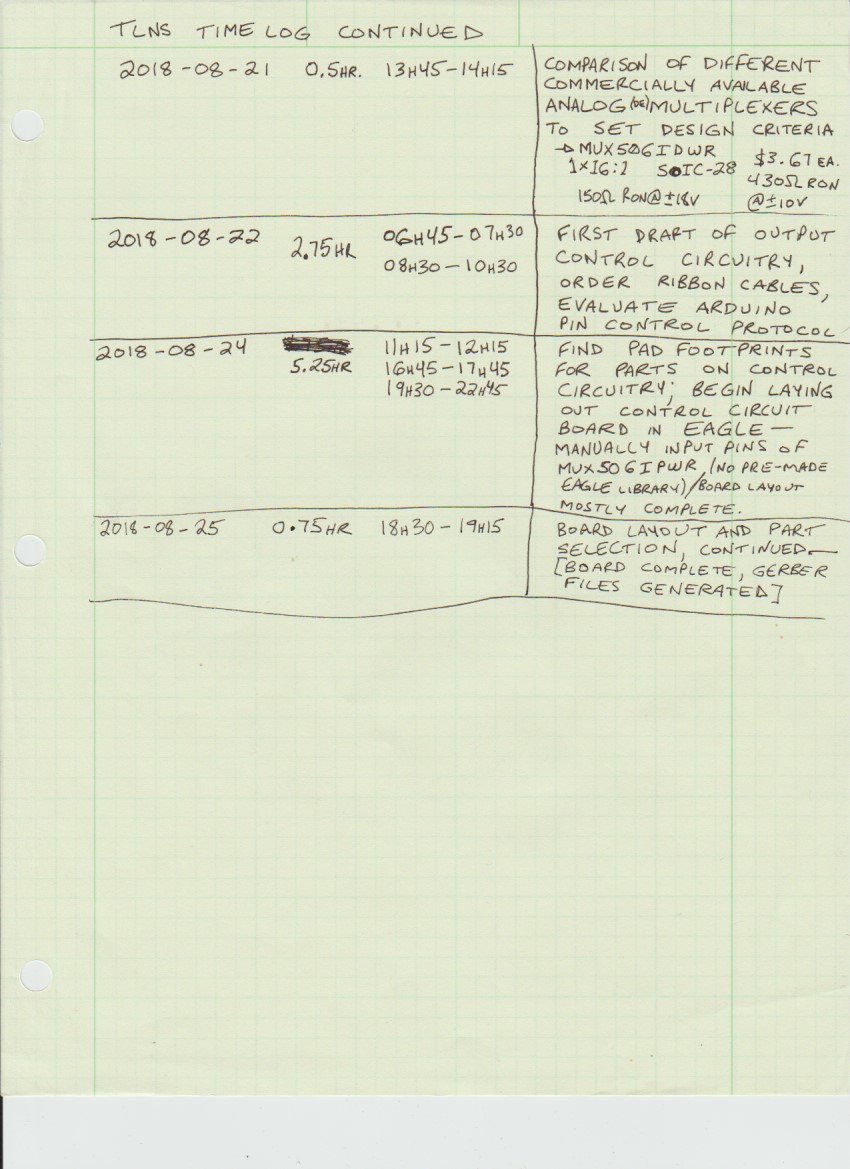 TLNS TIME LOG CONTINUED
2018-08-21 0.5HR. 13H45-14H15
COMPARISON OF DIFFERENT
COMMERCIALLY AVAILABLE
ANALOG (DE)MULTIPLEXERS
TO SET DESIGN CRITERIA
→ MUX506IDWR $3.67 EA.
1×16:1 SOIC-28 430Ω RON
150Ω RON@±18V @±10V
2018-08-22 2.75HR 06H45-07H30
08H30-10H30
FIRST DRAFT OF OUTPUT
CONTROL CIRCUITRY,
ORDER RIBBON CABLES,
EVALUATE ARDUINO
PIN CONTROL PROTOCOL
2018-08-24 11H15-12H15
5.25HR 16H45-17H45
19H30-22H45
FIND PAD FOOTPRINTS
FOR PARTS ON CONTROL
CIRCUITRY; BEGIN LAYING
OUT CONTROL CIRCUIT
BOARD IN EAGLE—
MANUALLY INPUT PINS OF
MUX506IPWR (NO PRE-MADE
EAGLE LIBRARY)/BOARD LAYOUT
MOSTLY COMPLETE.
2018-08-25 0.75HR 18H30-19H15
BOARD LAYOUT AND PART
SELECTION, CONTINUED—
[BOARD COMPLETE, GERBER
FILES GENERATED]